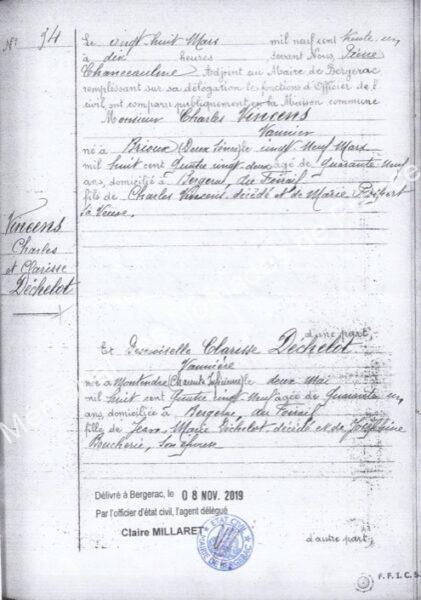 N° 94
Le vingt huit Mars mil neuf cent trente un
à dix heures, devant Nous, Pierre
Chanceaulme, Adjoint au Maire de Bergerac
remplissant sur sa délégation les fonctions d'Officier de l'
civil, ont comparu publiquement en la Maison commune
Monsieur Charles Vincens
Vannier
né à Brioux (Deux Sèvres) le vingt Neuf Mars
mil huit cent quatre vingt deux âgé de quarante neuf
ans, domicilié à Bergerac, du
fils de Charles Vincens, décédé et de Marie
sa Veuve.
Vincens
Charles
et Clarisse
Déchelot
d'une part,
Et Demoiselle Clarisse Déchelot
Vannière
née à Montendre (Charente Inférieure) le deux Mai
mil huit cent quatre vingt Neuf âgée de quarante un
ans, domiciliée à Bergerac,
fille de Jean Marie Déchelot décédé et de Joséphine
Boucherie, son épouse
Délivré à Bergerac, le 08 NOV. 2019
Par l'officier d'état civil, l'agent délégué
Claire MILLARET
ETAT CIVIL
MAIRIE DE BERGERAC
d'autre part;
F.F.I.C.S.